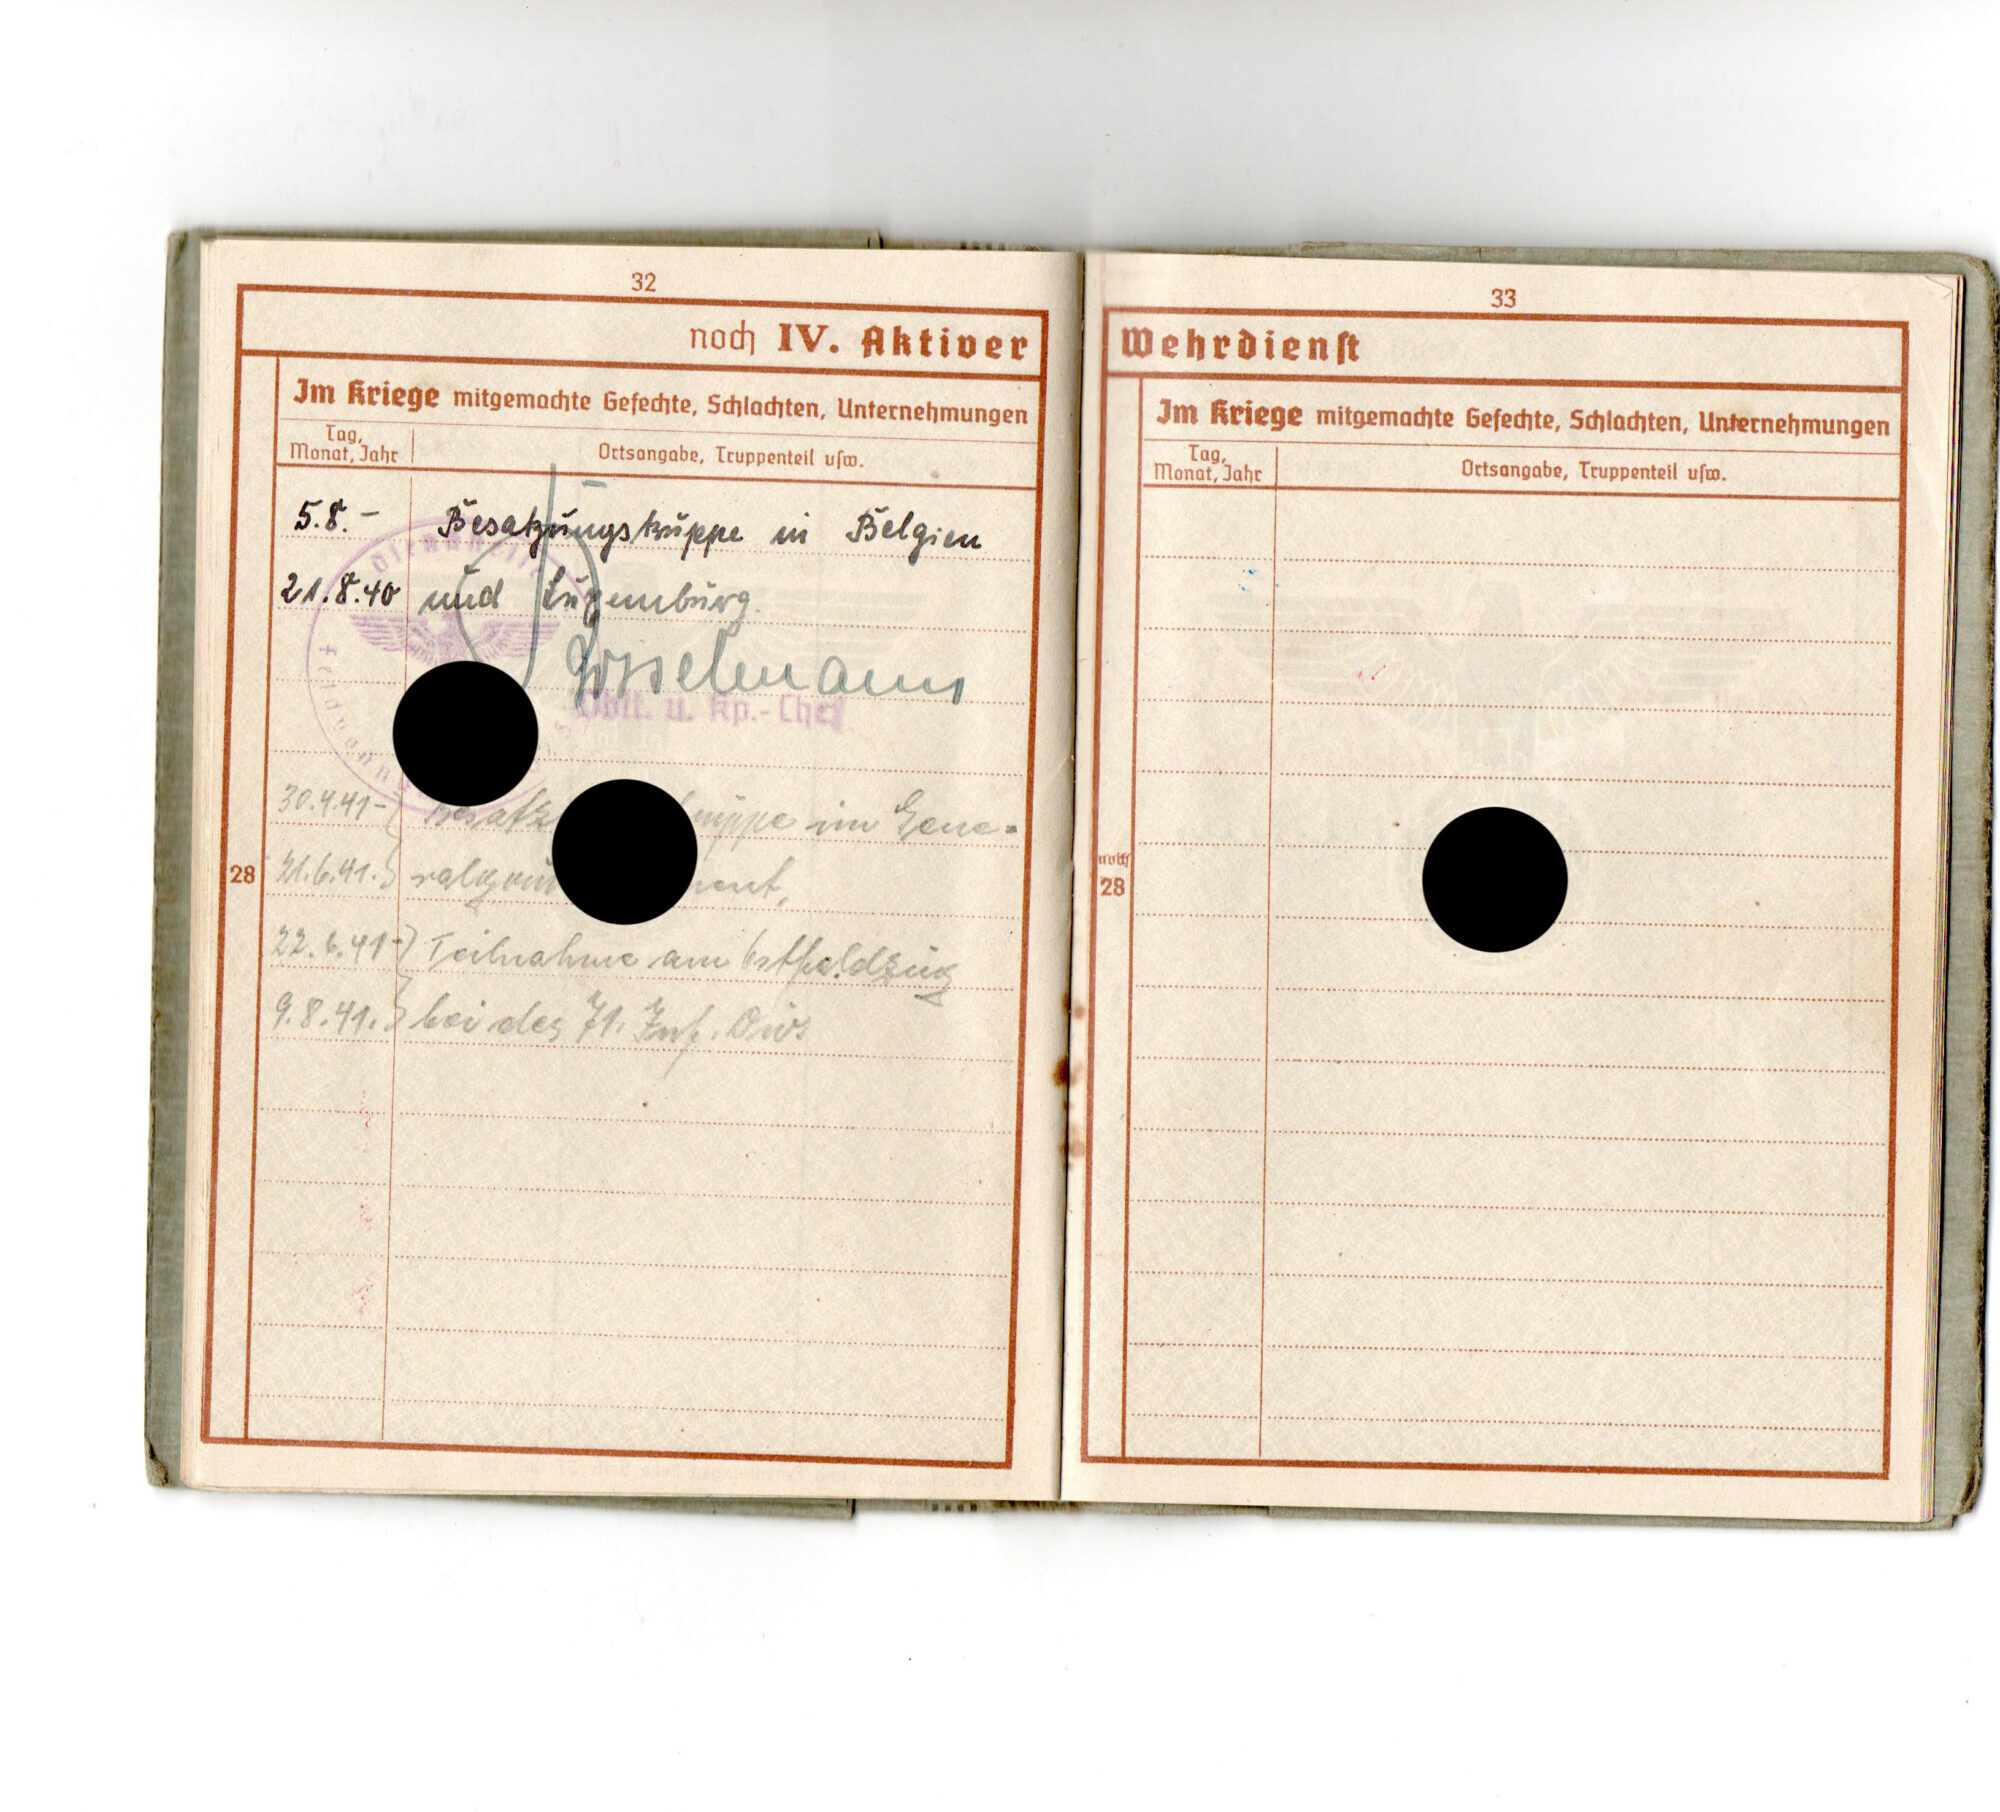 32
noch IV. Aktiver
Im Kriege mitgemachte Gefechte, Schlachten, Unternehmungen
Tag,
Monat, Jahr
Ortsangabe, Truppenteil usw.
5.8.- Besatzungstruppe in Belgien
21.8.40 und Luxemburg.
Oblt. u. Kp.-Chef
Dienststelle
Feldpost
30.4.41- im Gene-
28
21.6.41.
22.6.41- Teilnahme am Ostfeldzug
9.8.41. bei der 71. Inf. Div.
33
Wehrdienst
Im Kriege mitgemachte Gefechte, Schlachten, Unternehmungen
Tag,
Monat, Jahr
Ortsangabe, Truppenteil usw.
noch
28